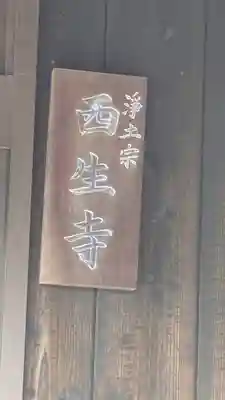 浄土宗
西生寺